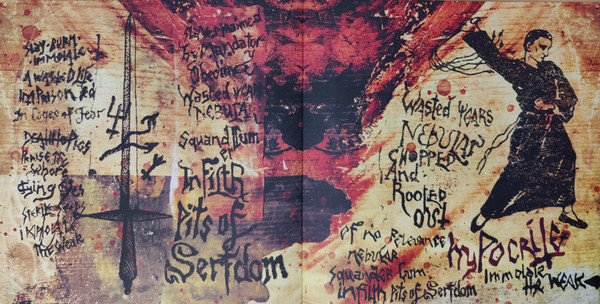 Slay-Burn-
immolate
A wasted life
imprisoned
In cages of Fear
Dying
The Weak
Slaves maimed
In Mandator
Obedience
Wasted years
NEBULAR
Squander Cum
In Filth
Pits of
Serfdom
Wasted years
NEBULAR
CHOPPED
And
Rooted
out
of no Relevance
nebular
squander Cum
in Filth Pits of Serfdom
Hypocrite
Immolate
the WEAK